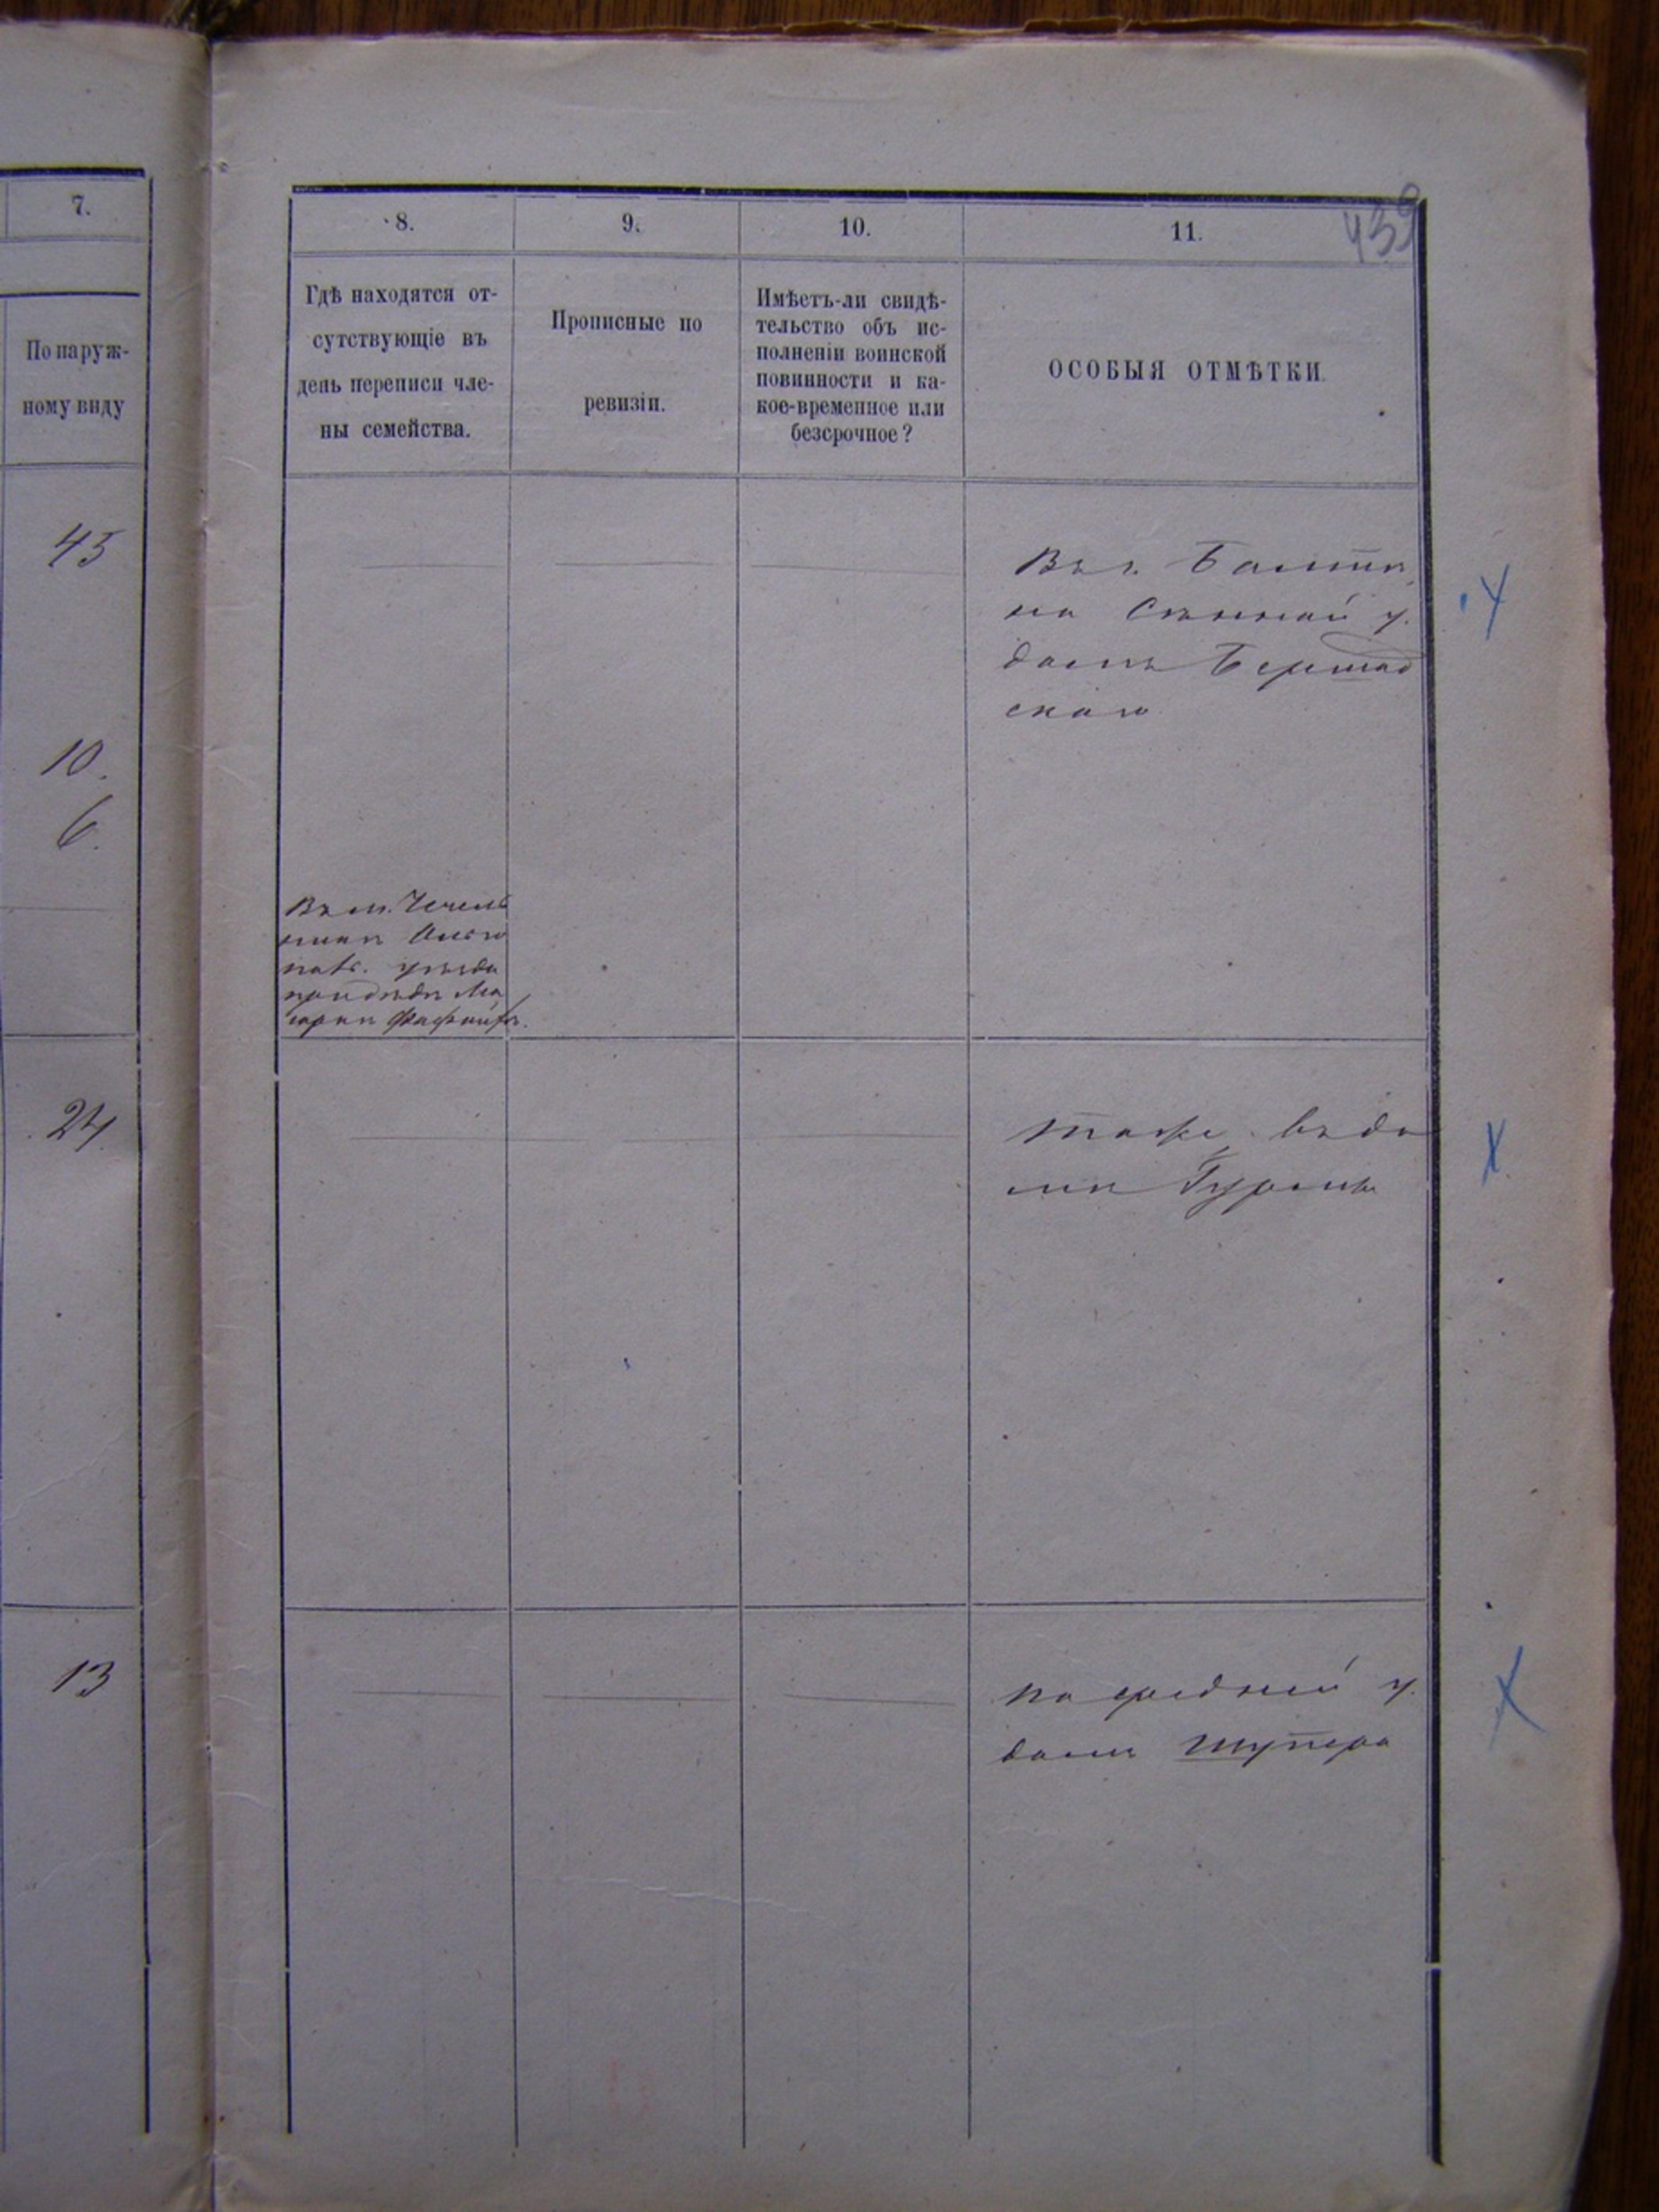 7.
По наруж-
ному виду
45
10.
6.
24
13
439
8.
9.
10.
11.
Гдѣ находятся от-
сутствующіе въ
день переписи чле-
ны семейства.
Прописные по
ревизіи.
Имѣетъ-ли свидѣ-
тельство объ ис-
полненіи воинской
повинности и ка-
кое-временное или
безсрочное?
ОСОБЫЯ ОТМѢТКИ.
Въ г. Балтѣ
на Сѣнной у.
домъ Бершад
скаго
Въ м. Чечель
никѣ Ольго
пол. уѣзда
при дѣдѣ
тоже въ до
мѣ
на средней у.
домъ Шупера